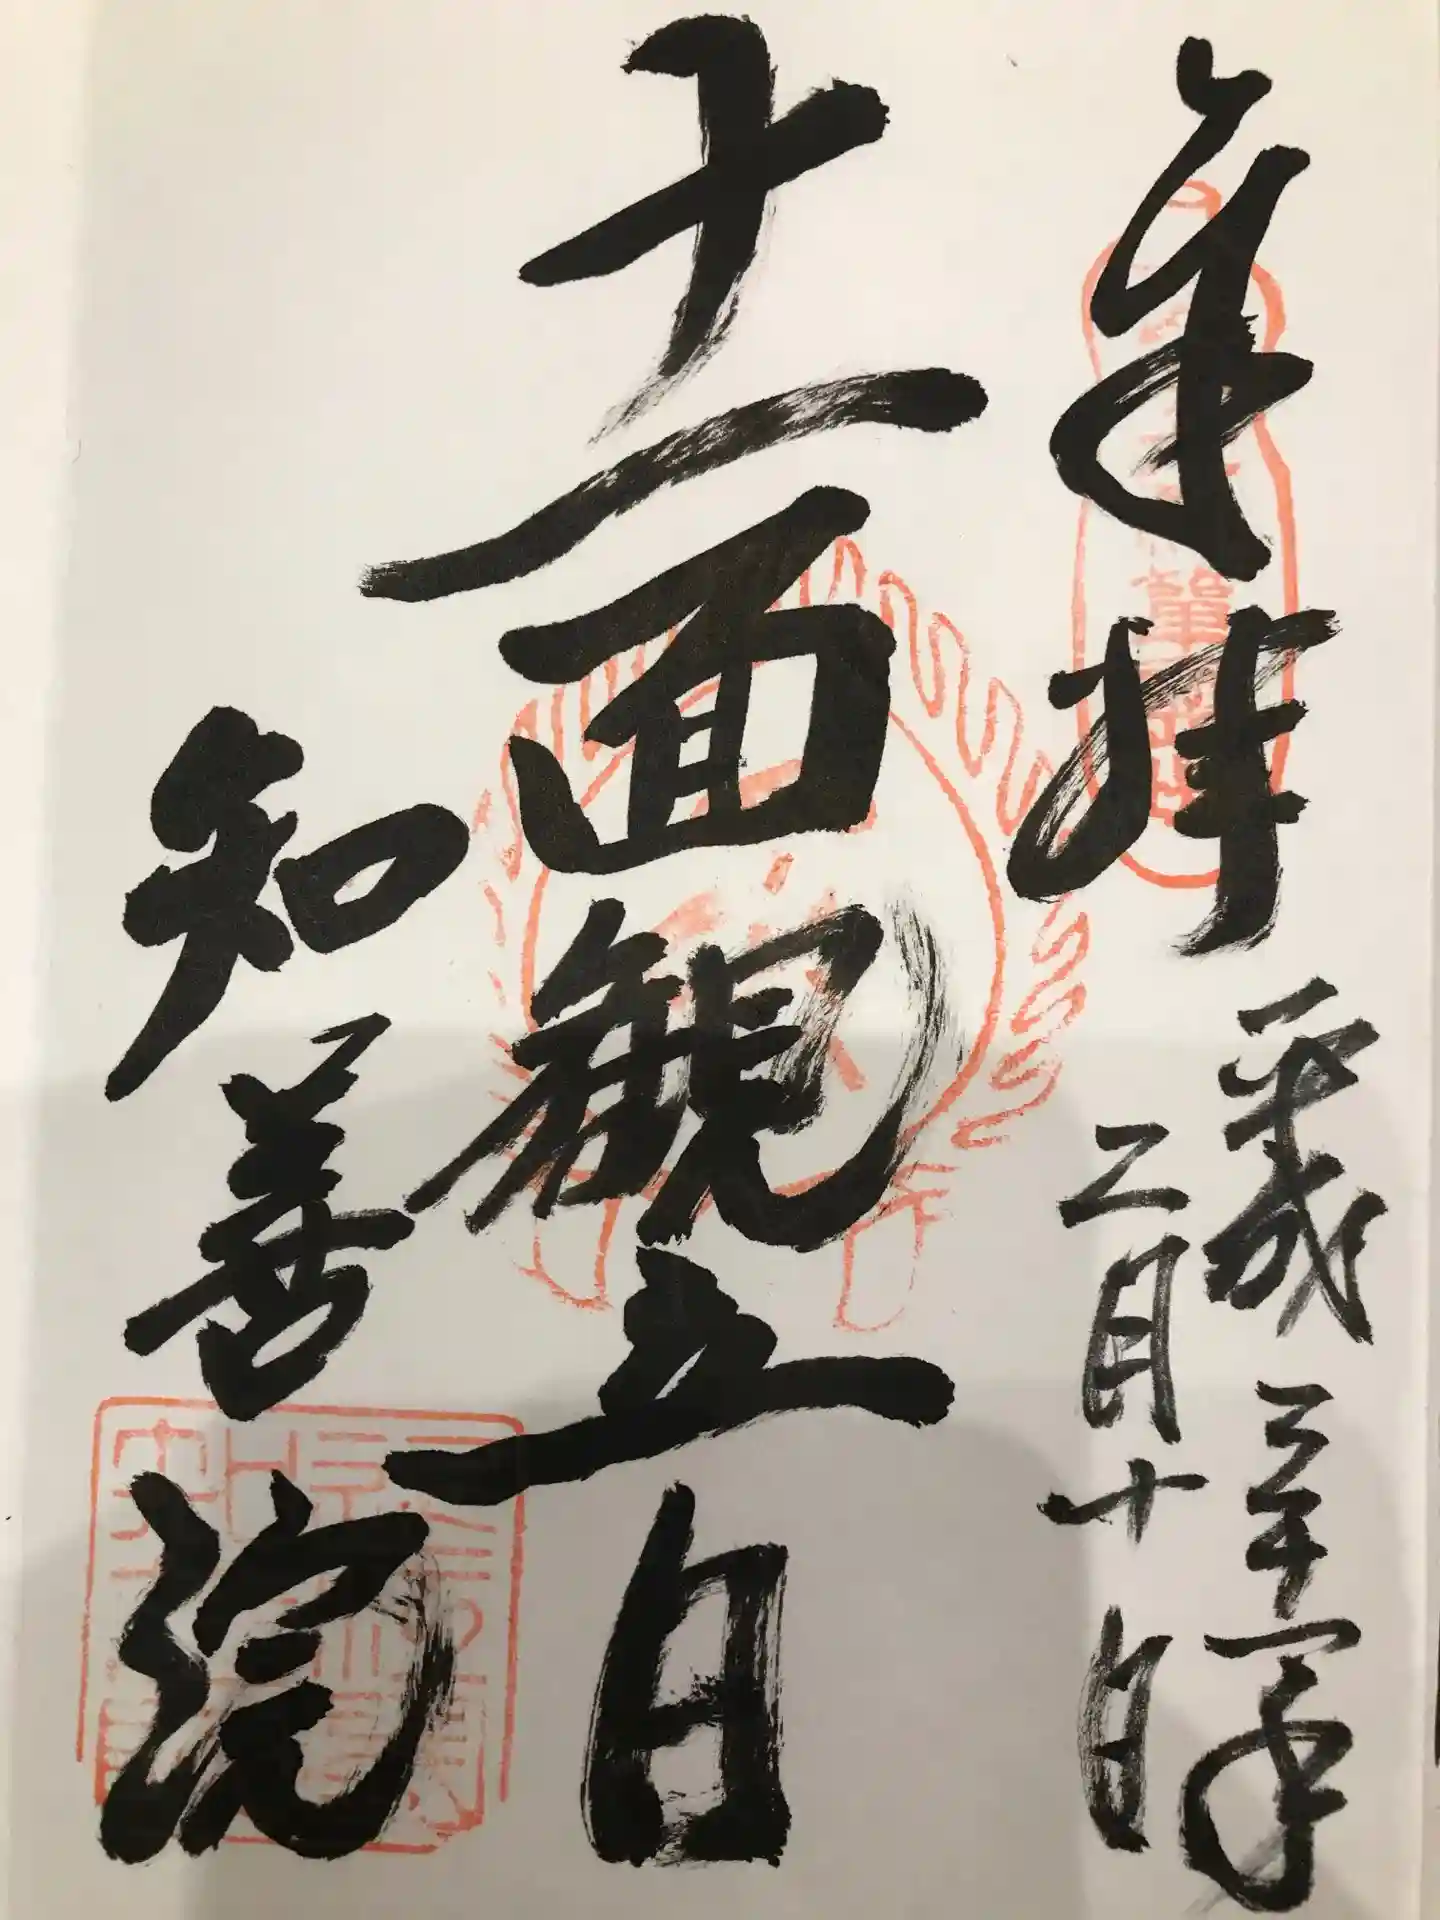 奉拝
平成三十年
二月十日
十一面観音
知善院